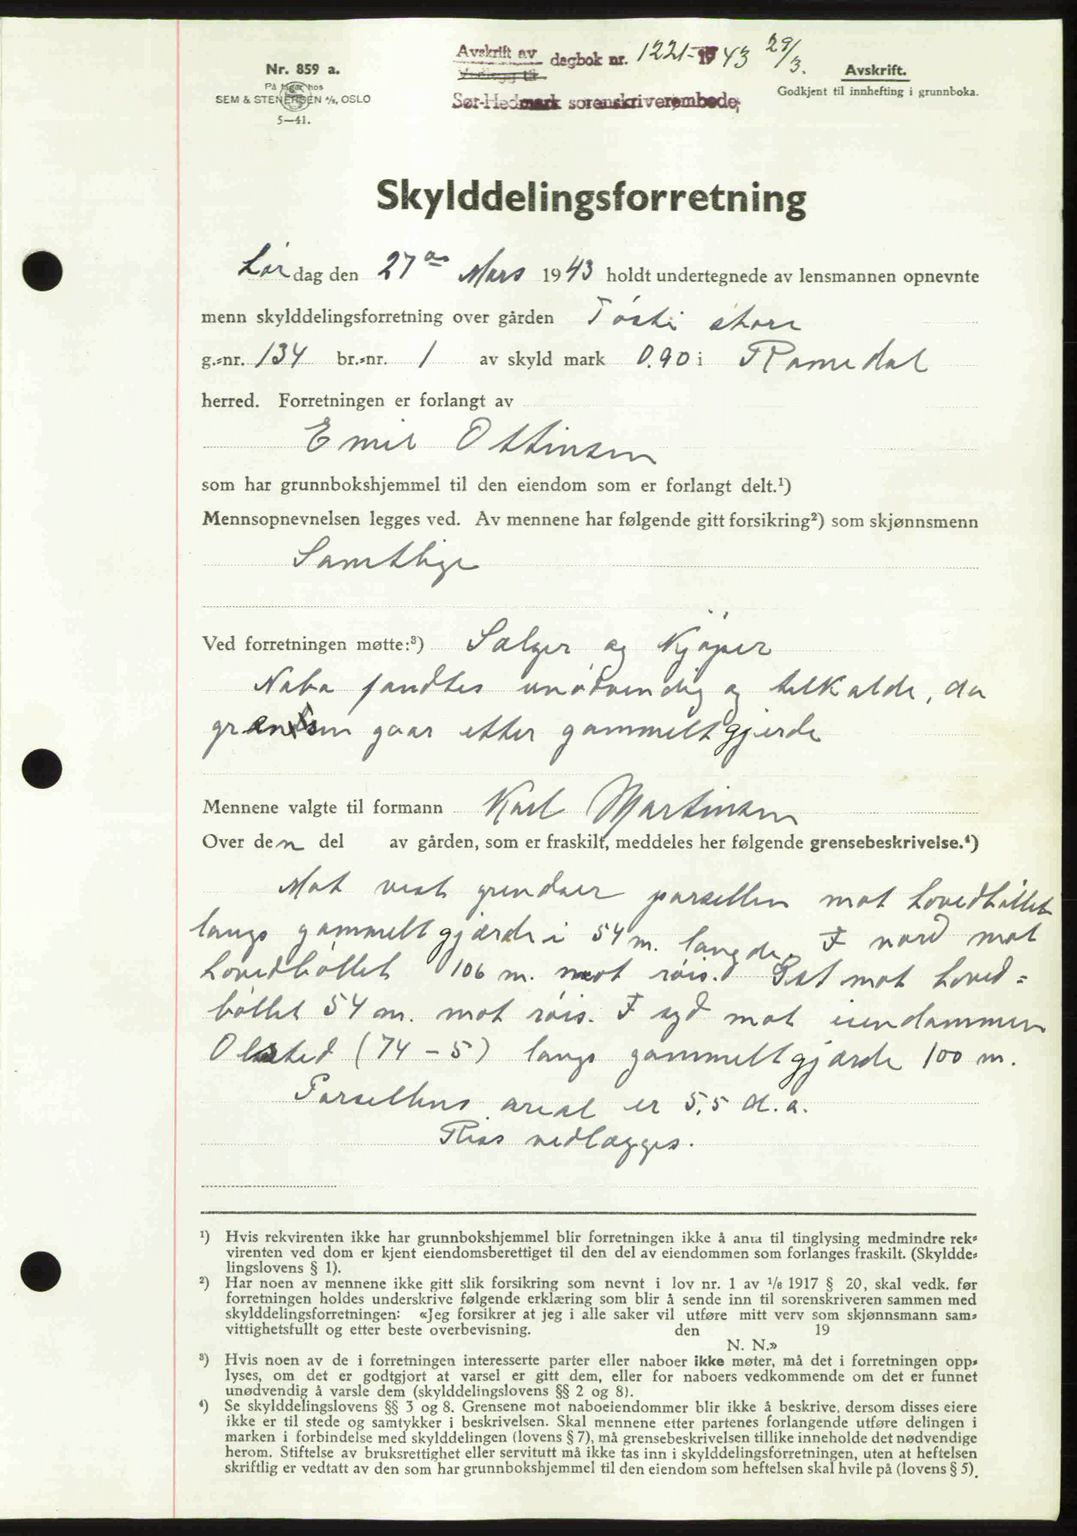 Nr. 859 a.
På lager hos
SEM & STENERSEN A/S, OSLO
5—41.
Avskrift av dagbok nr. 1221-1943 29/3.
Vedlegg til
Sør-Hedmark sorenskriverembede;
Avskrift.
Godkjent til innhefting i grunnboka.
Skylddelingsforretning
Lørdag den 27de Mars 1943 holdt undertegnede av lensmannen opnevnte
menn skylddelingsforretning over gården Tøsti store
g.-nr. 134 br.-nr. 1 av skyld mark 0.90 i Romedal
herred. Forretningen er forlangt av
Emil Ottinsen
som har grunnbokshjemmel til den eiendom som er forlangt delt.¹)
Mennsopnevnelsen legges ved. Av mennene har følgende gitt forsikring²) som skjønnsmenn
Samtlige
Ved forretningen møtte:³) Sælger og Kjøper
Nabo fandtes unødvendig og tilkalde, da
grænsen gaar etter gammelt gjerde
Mennene valgte til formann Karl Martinsen
Over den del av gården, som er fraskilt, meddeles her følgende grensebeskrivelse.⁴)
Mot vest grendser parsellen mot hovedbøllet
langs gammelt gjærde i 54 m. langde. I nord mot
hovedbøllet 106 m. mot røis. Øst mot hoved=
bøllet 54 m. mot røis. I syd mot eiendommen
Olsted (74 - 5) langs gammelt gjærde 100 m.
Parsellens areal er 5,5 d.a.
Riss vedlægges.
¹) Hvis rekvirenten ikke har grunnbokshjemmel blir forretningen ikke å anta til tinglysing medmindre rek-
virenten ved dom er kjent eiendomsberettiget til den del av eiendommen som forlanges fraskilt. (Skyldde-
lingslovens § 1).
²) Har noen av mennene ikke gitt slik forsikring som nevnt i lov nr. 1 av 1/6 1917 § 20, skal vedk. før
forretningen holdes underskrive følgende erklæring som blir å sende inn til sorenskriveren sammen med
skylddelingsforretningen: «Jeg forsikrer at jeg i alle saker vil utføre mitt verv som skjønnsmann sam-
vittighetsfullt og etter beste overbevisning. den 19
N. N.»
³) Hvis noen av de i forretningen interesserte parter eller naboer ikke møter, må det i forretningen opp-
lyses, om det er godtgjort at varsel er gitt dem, eller for naboers vedkommende om det er funnet
unødvendig å varsle dem (skylddelingslovens §§ 2 og 8).
⁴) Se skylddelingslovens §§ 3 og 8. Grensene mot naboeiendommer blir ikke å beskrive, dersom disses eiere
ikke er til stede og samtykker i beskrivelsen. Skal mennene etter partenes forlangende utføre delingen i
marken i forbindelse med skylddelingen (lovens § 7), må grensebeskrivelsen tillike inneholde det nødvendige
herom. Stiftelse av bruksrettighet eller servitutt må ikke tas inn i skylddelingsforretningen, uten at heftelsen
skriftlig er vedtatt av den som har grunnbokshjemmel til den eiendom som heftelsen skal hvile på (lovens § 5).